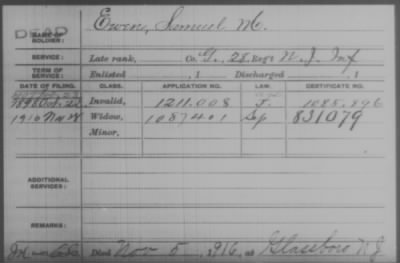 DEAD
NAME OF SOLDIER: Ewen, Samuel M.
SERVICE: Late rank, Co. G, 28 Reg't N. J. Inf
TERM OF SERVICE: Enlisted , 1 Discharged , 1
DATE OF FILING. CLASS. APPLICATION NO. LAW. CERTIFICATE NO.
1898 Oct. 22 Invalid, 1211.008 J. 1085.896
1916 Nov Widow, 1087401 Sep 831079
Minor,
ADDITIONAL SERVICES:
REMARKS:
Died Nov 5, 1916, at Glassboro N J